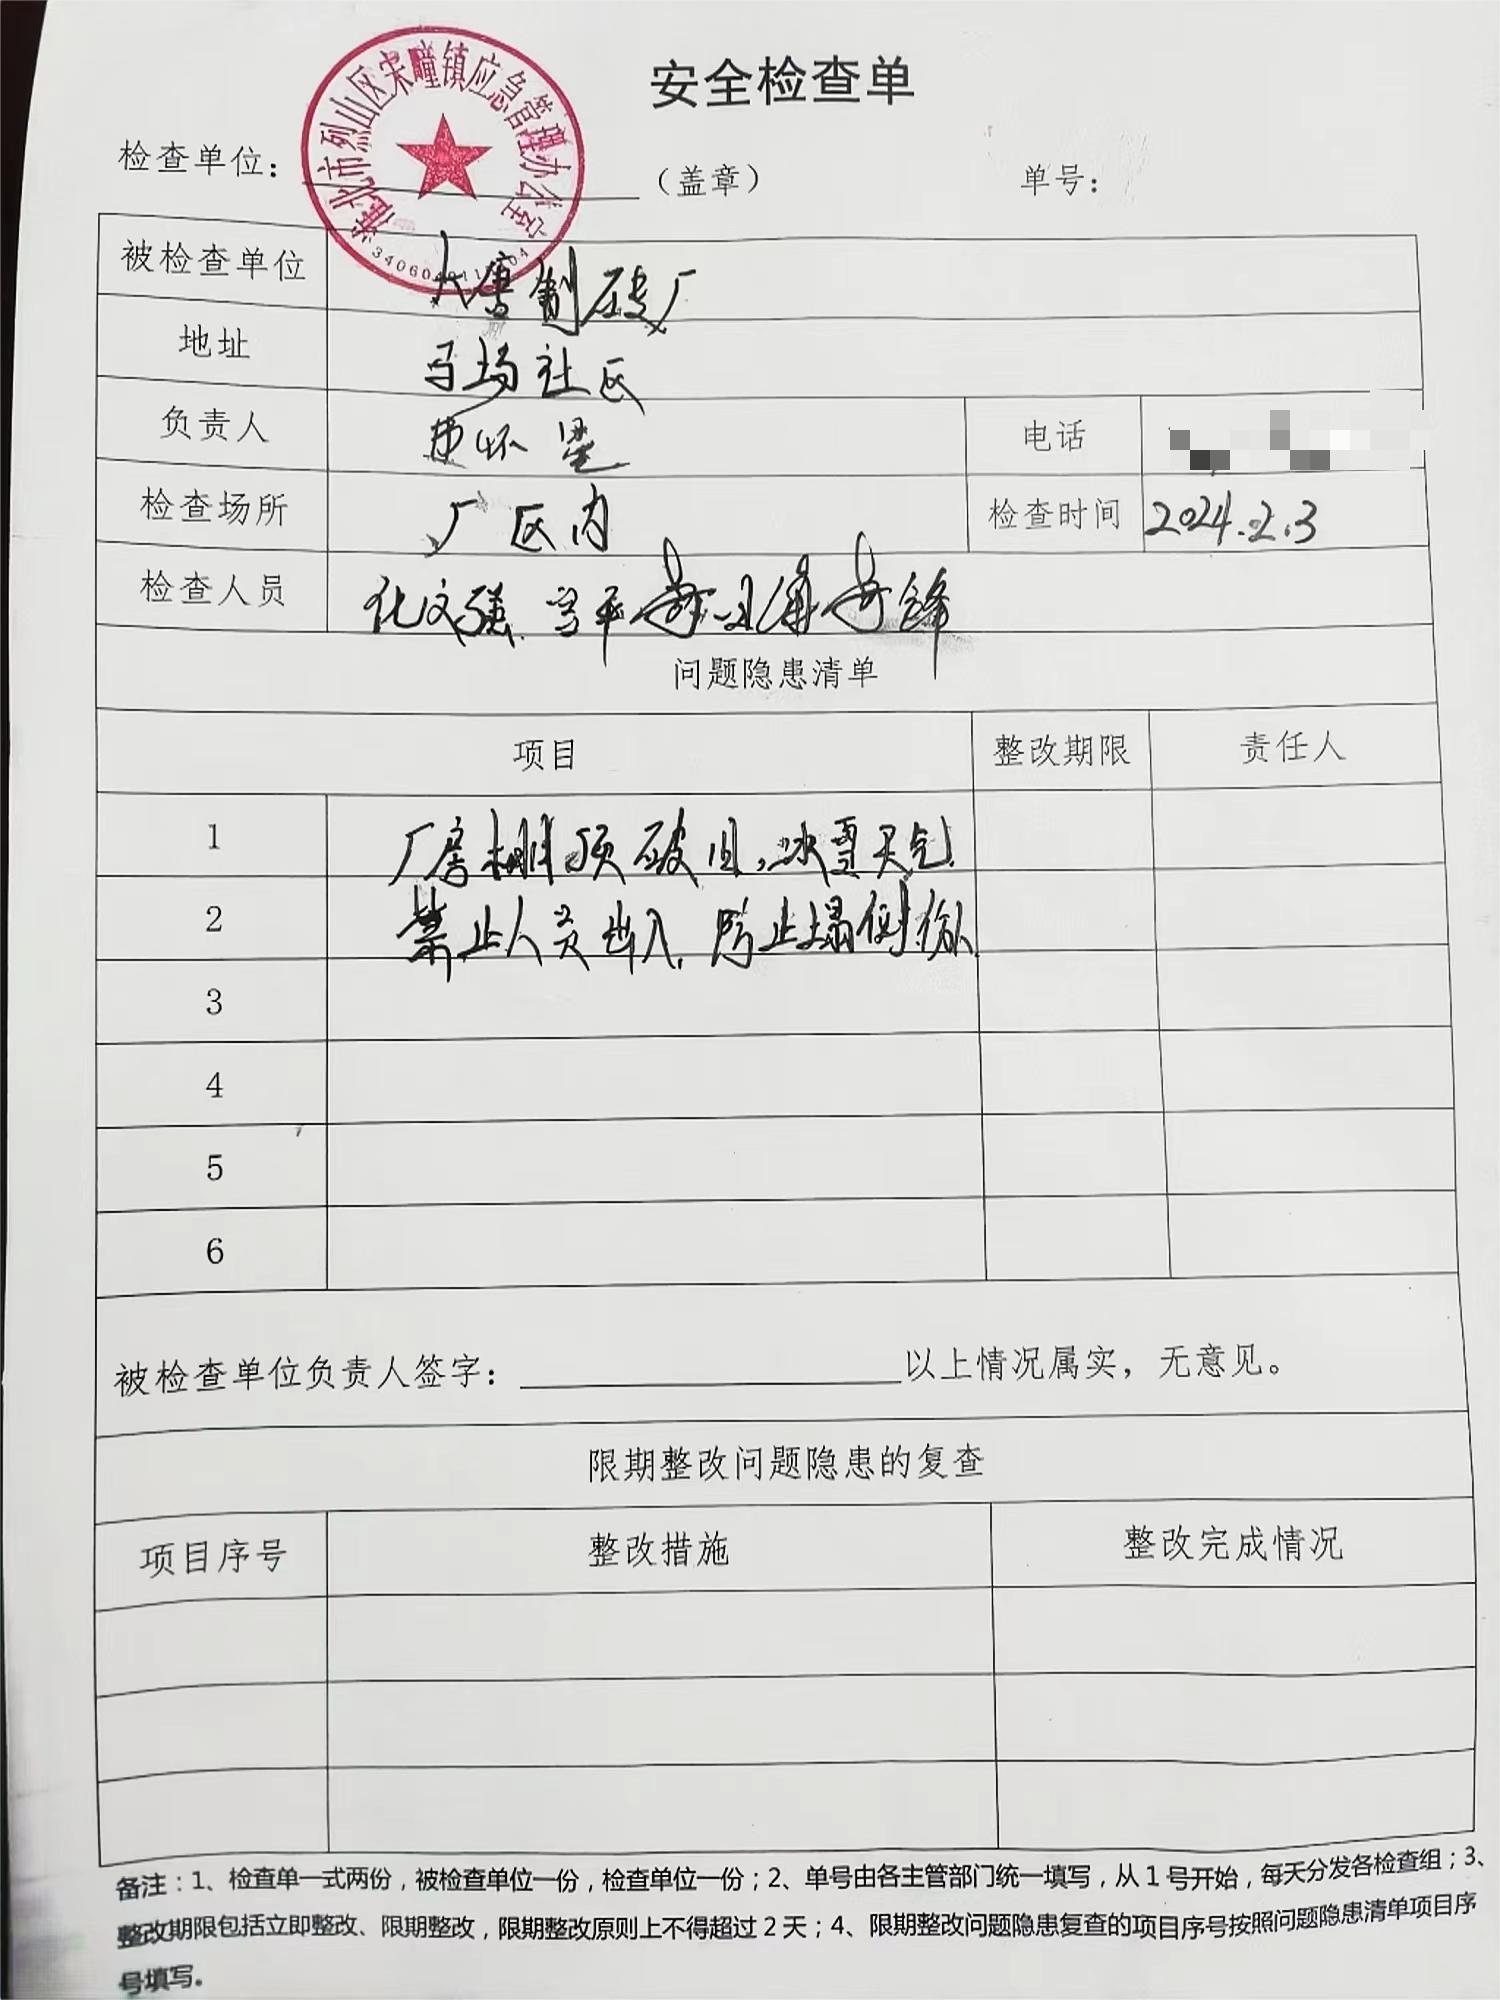 安全检查单
淮北市烈山区宋疃镇应急管理办公室
检查单位： （盖章） 单号：
被检查单位 大唐制砖厂
地址 马场社区
负责人 怀 电话
检查场所 厂区内 检查时间 2024.2.3
检查人员 化文强
问题隐患清单
项目 整改期限 责任人
1 厂房棚顶破旧，冰雪天气
2 禁止人员出入，防止塌倒
3
4
5
6
被检查单位负责人签字： 以上情况属实，无意见。
限期整改问题隐患的复查
项目序号 整改措施 整改完成情况
备注：1、检查单一式两份，被检查单位一份，检查单位一份；2、单号由各主管部门统一填写，从1号开始，每天分发各检查组；3、
整改期限包括立即整改、限期整改，限期整改原则上不得超过2天；4、限期整改问题隐患复查的项目序号按照问题隐患清单项目序
号填写。